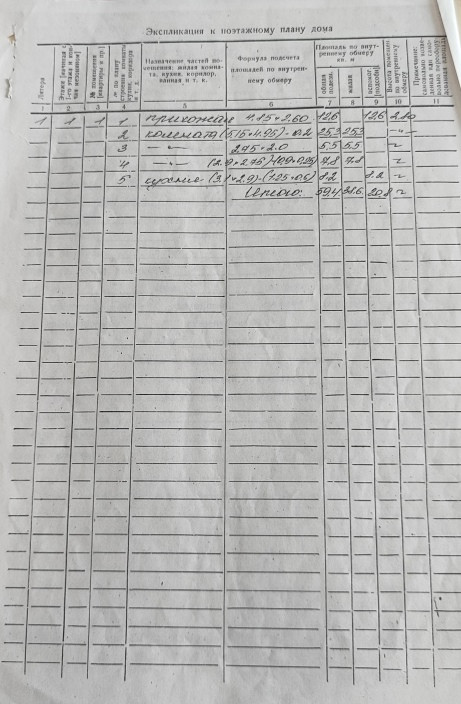 Экспликация к поэтажному плану дома
Литера
Этажи (начиная с 1-го этажа и кончая мезонином)
№ помещения (квартиры и пр.)
№ по плану строения
и т. п.
Назначение частей помещения: жилая комната, кухня, коридор, ванная и т. к.
Формула подсчета площадей по внутреннему обмеру
Площадь по внутреннему обмеру кв. м
Высота помещ. по внутреннему обмеру
Примечание:
1 2 3 4 5 6 7 8 9 10 11
1 1 1 1 прихожая 4.85×2.60 12,6 12.6 2.10
2 комната (5,15×4.95)-0.2 25,3 25,3 -"-
3 -"- 2.75×2.0 5.5 5.5
4 -"- 7.8 7.8
5 кухня 8.2 8.2
Итого: 59,4 38.6 20.8